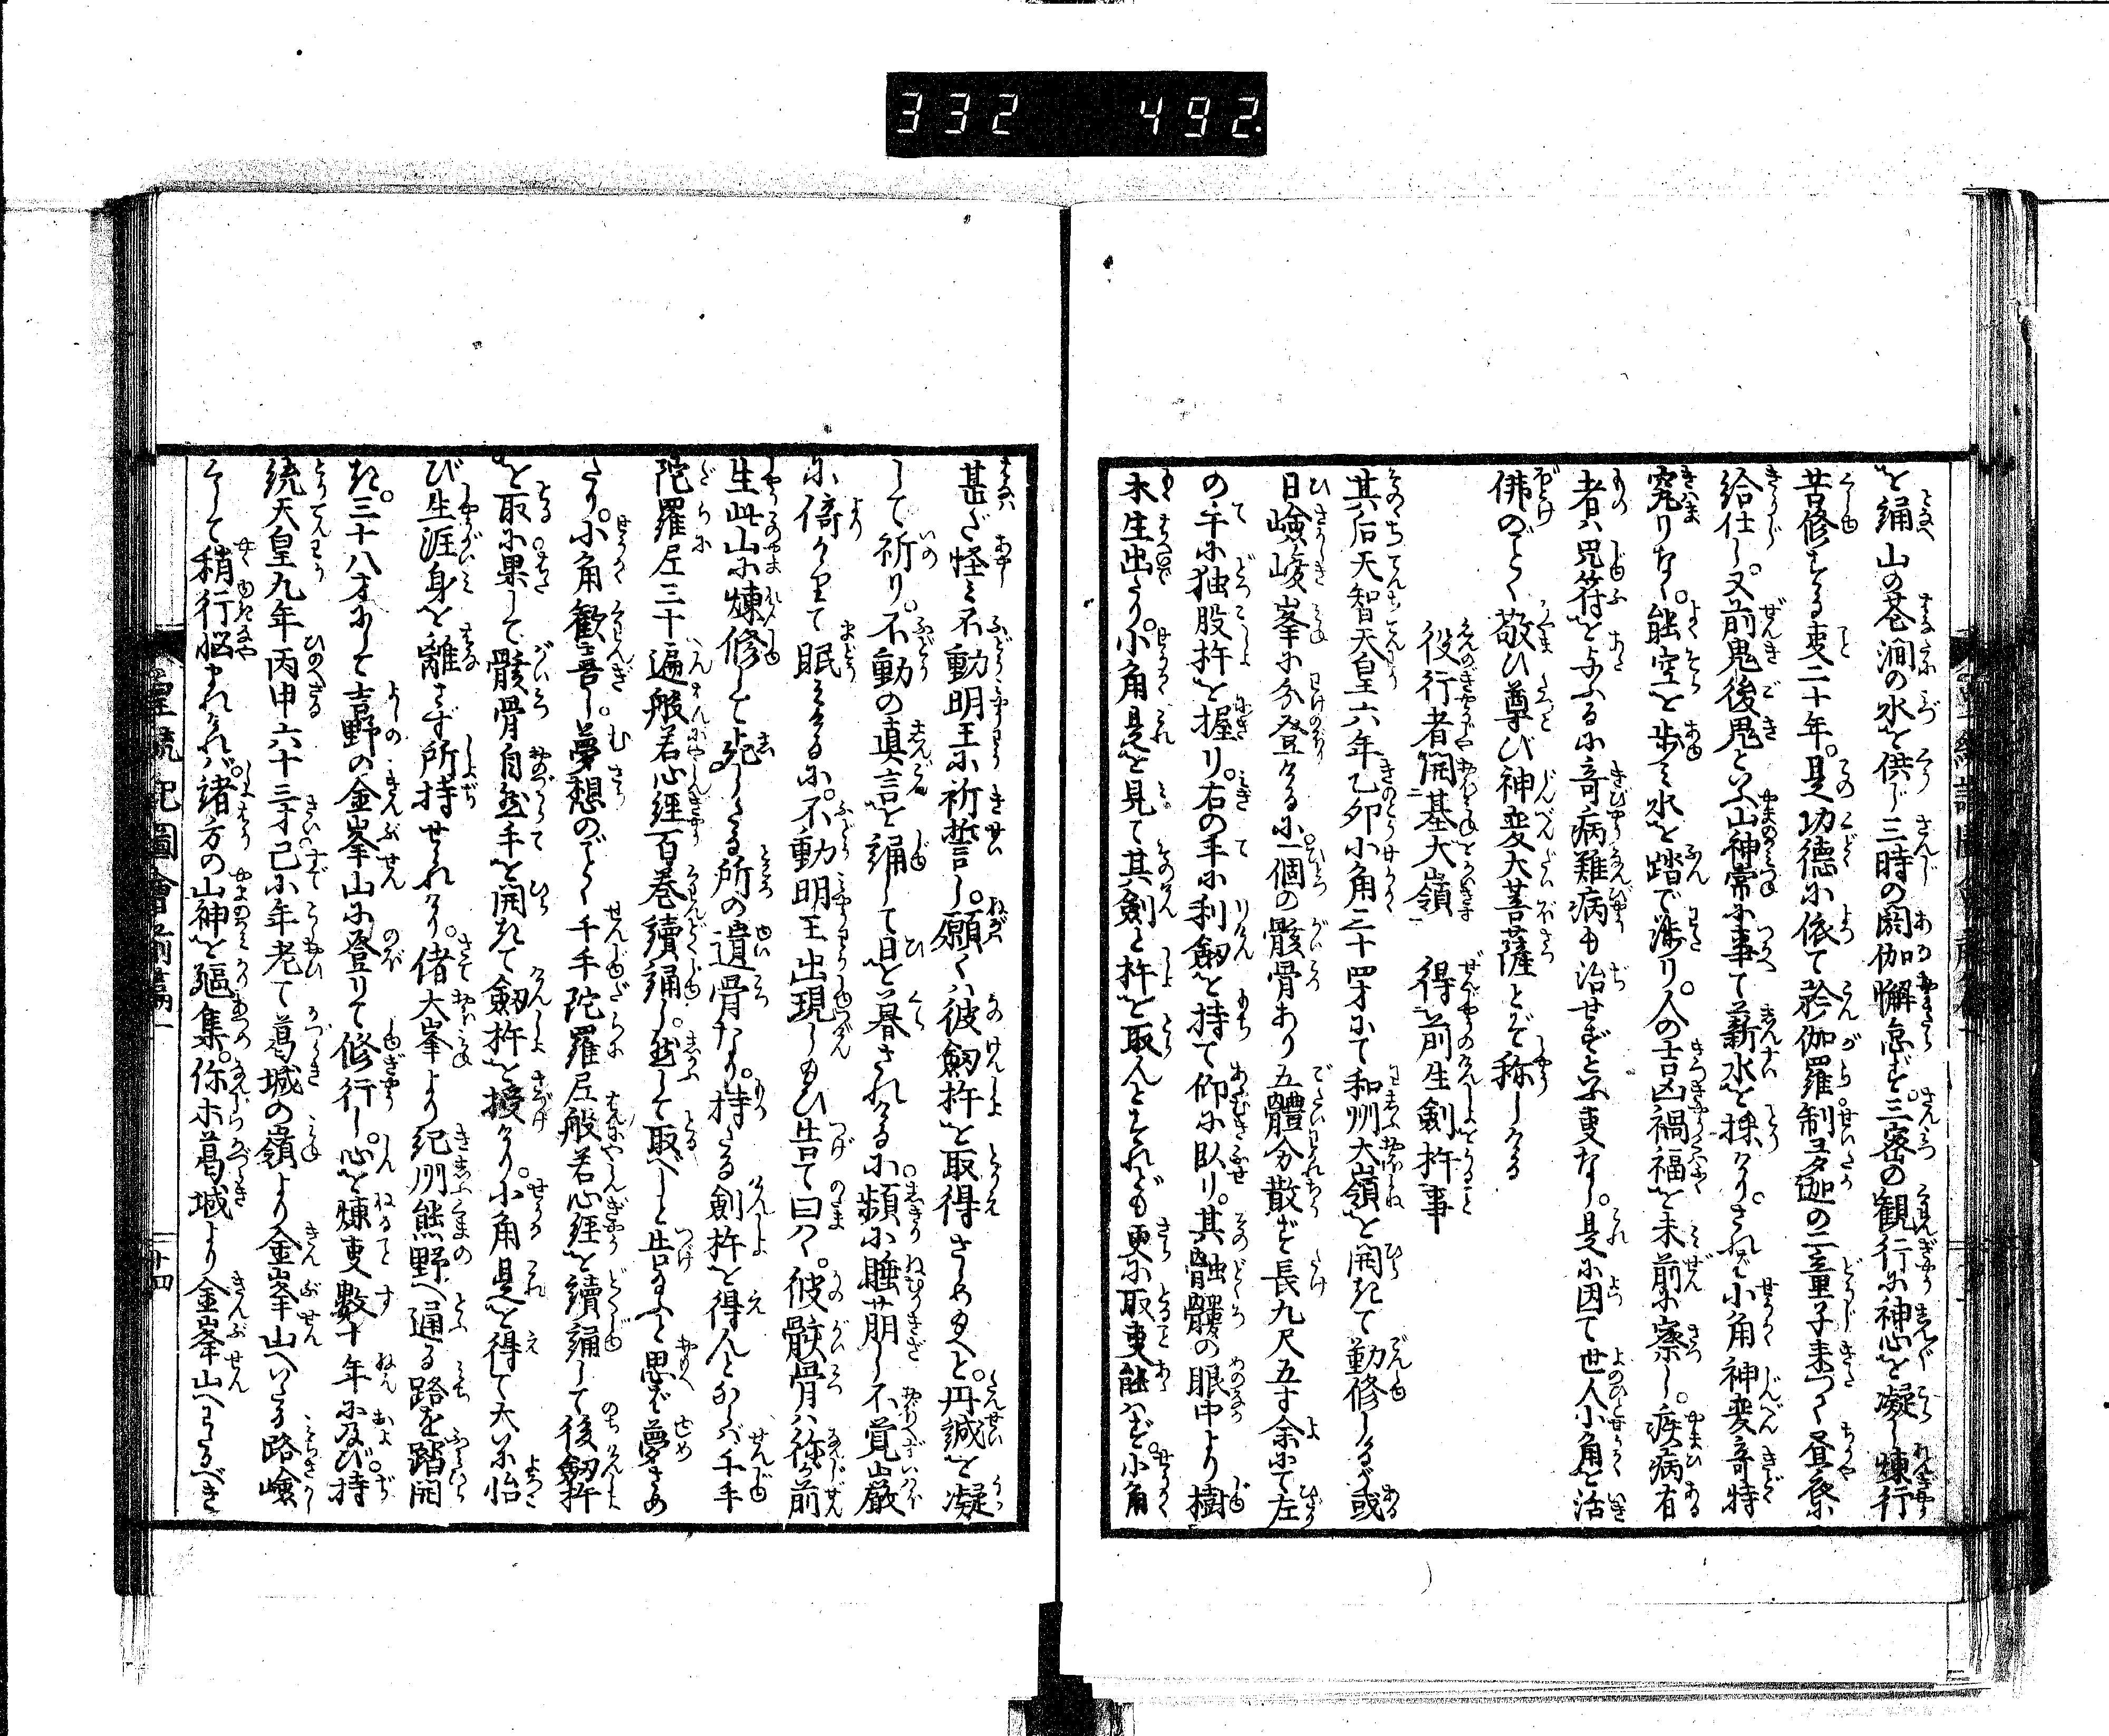 332 492.
を誦山の苍澗の水を供じ三時の閼伽懈怠ず三密の観行に神心を凝し煉行
苦修する事二十年。是功徳に依て矜伽羅制多迦の二童子来つて昼夜
給仕し又前鬼後鬼といふ山神常に事て薪水を採けり。されば小角神変奇特
究りなく。能空を歩み水を踏で渉り。人の吉凶禍福を未前に察し。疾病有
者は呪符を与ふるに奇病難病も治せずといふ事なし。是に因て世人小角を活
佛のごとく敬ひ尊び神変大菩薩とぞ称しける
役行者開基大嶺 得前生劍杵事
其后天智天皇六年乙卯小角三十四才にて和州大嶺を開きて勤修しけるが或
日嶮き峻峯に分登けるに。一個の骸骨あり五體分散ず長九尺五寸余にて左
の手に独股杵を握り。右の手に利劔を持て仰に臥り。其髑髏の眼中より樹
木生出たり。小角是を見て其劍と杵を取んとすれども更に取事能はず。小角
甚だ怪み不動明王に祈誓し。願くは彼劔杵を取得さしめ玉へと。丹誠を凝
して祈り。不動の真言を誦して日を暮されけるに頻に睡萠し不覚巌
に倚かゝりて眠みけるに。不動明王出現し玉ひ告て曰く。彼骸骨は你が前
生此山に煉修して死したる所の遺骨なり。持たる劍杵を得んとならば千手
陀羅尼三十遍般若心経百巻讀誦し。然して取べしと告玉ふと思ば夢さめ
たり。小角歓喜し。夢想のごとく千手陀羅尼般若心経を讀誦して後劔杵
を取に果して骸骨自然手を開きて劔杵を授けり。小角是を得て大に怡
び生涯身を離さず所持せられけり。偖大峯より紀州熊野へ通る路を踏開
き。三十八才にして吉野の金峯山に登りて修行し。心を煉事數十年に及び。持
統天皇九年丙申六十三才已に年老て葛城の嶺より金峯山へいたる路嶮
くして稍行悩まれければ。諸方の山神を驅集。你ホ葛城より金峯山へわたるべき
皇統記圖會前編一 廿四